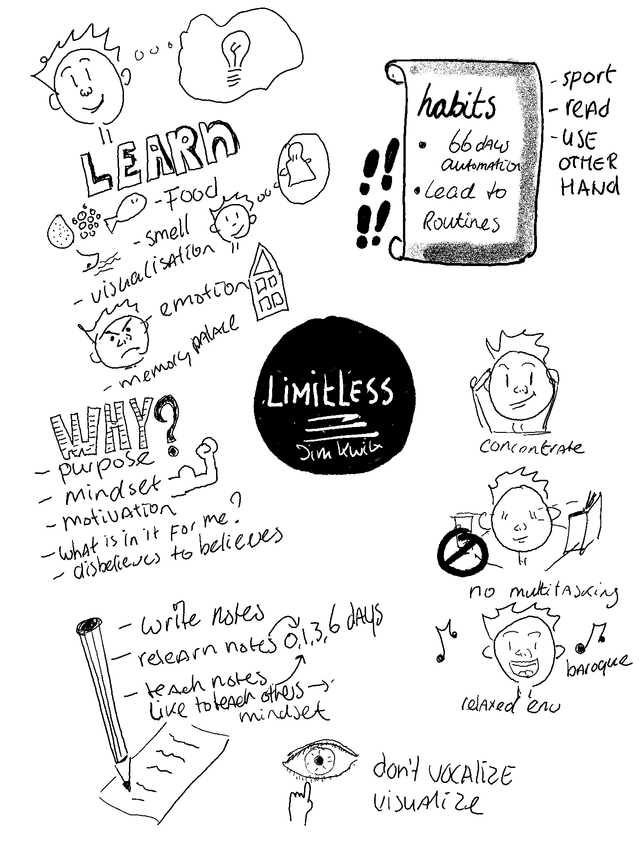 LEARN
- Food
- smell
- visualisation
emotion
- memory palace
habits
• 66 days
automation
• Lead to
Routines
- sport
- READ
- USE
OTHER
HAND
LimitLESS
Jim Kwik
WHY?
- purpose
- mindset
- motivation
- what is in it for me?
- disbelieves to believes
concentrate
no multitasking
baroque
relaxed env
- write notes
- relearn notes 0,1,3,6 days
- teach notes
like to teach others →
mindset
don't VOCALIZE
VISUALIZE